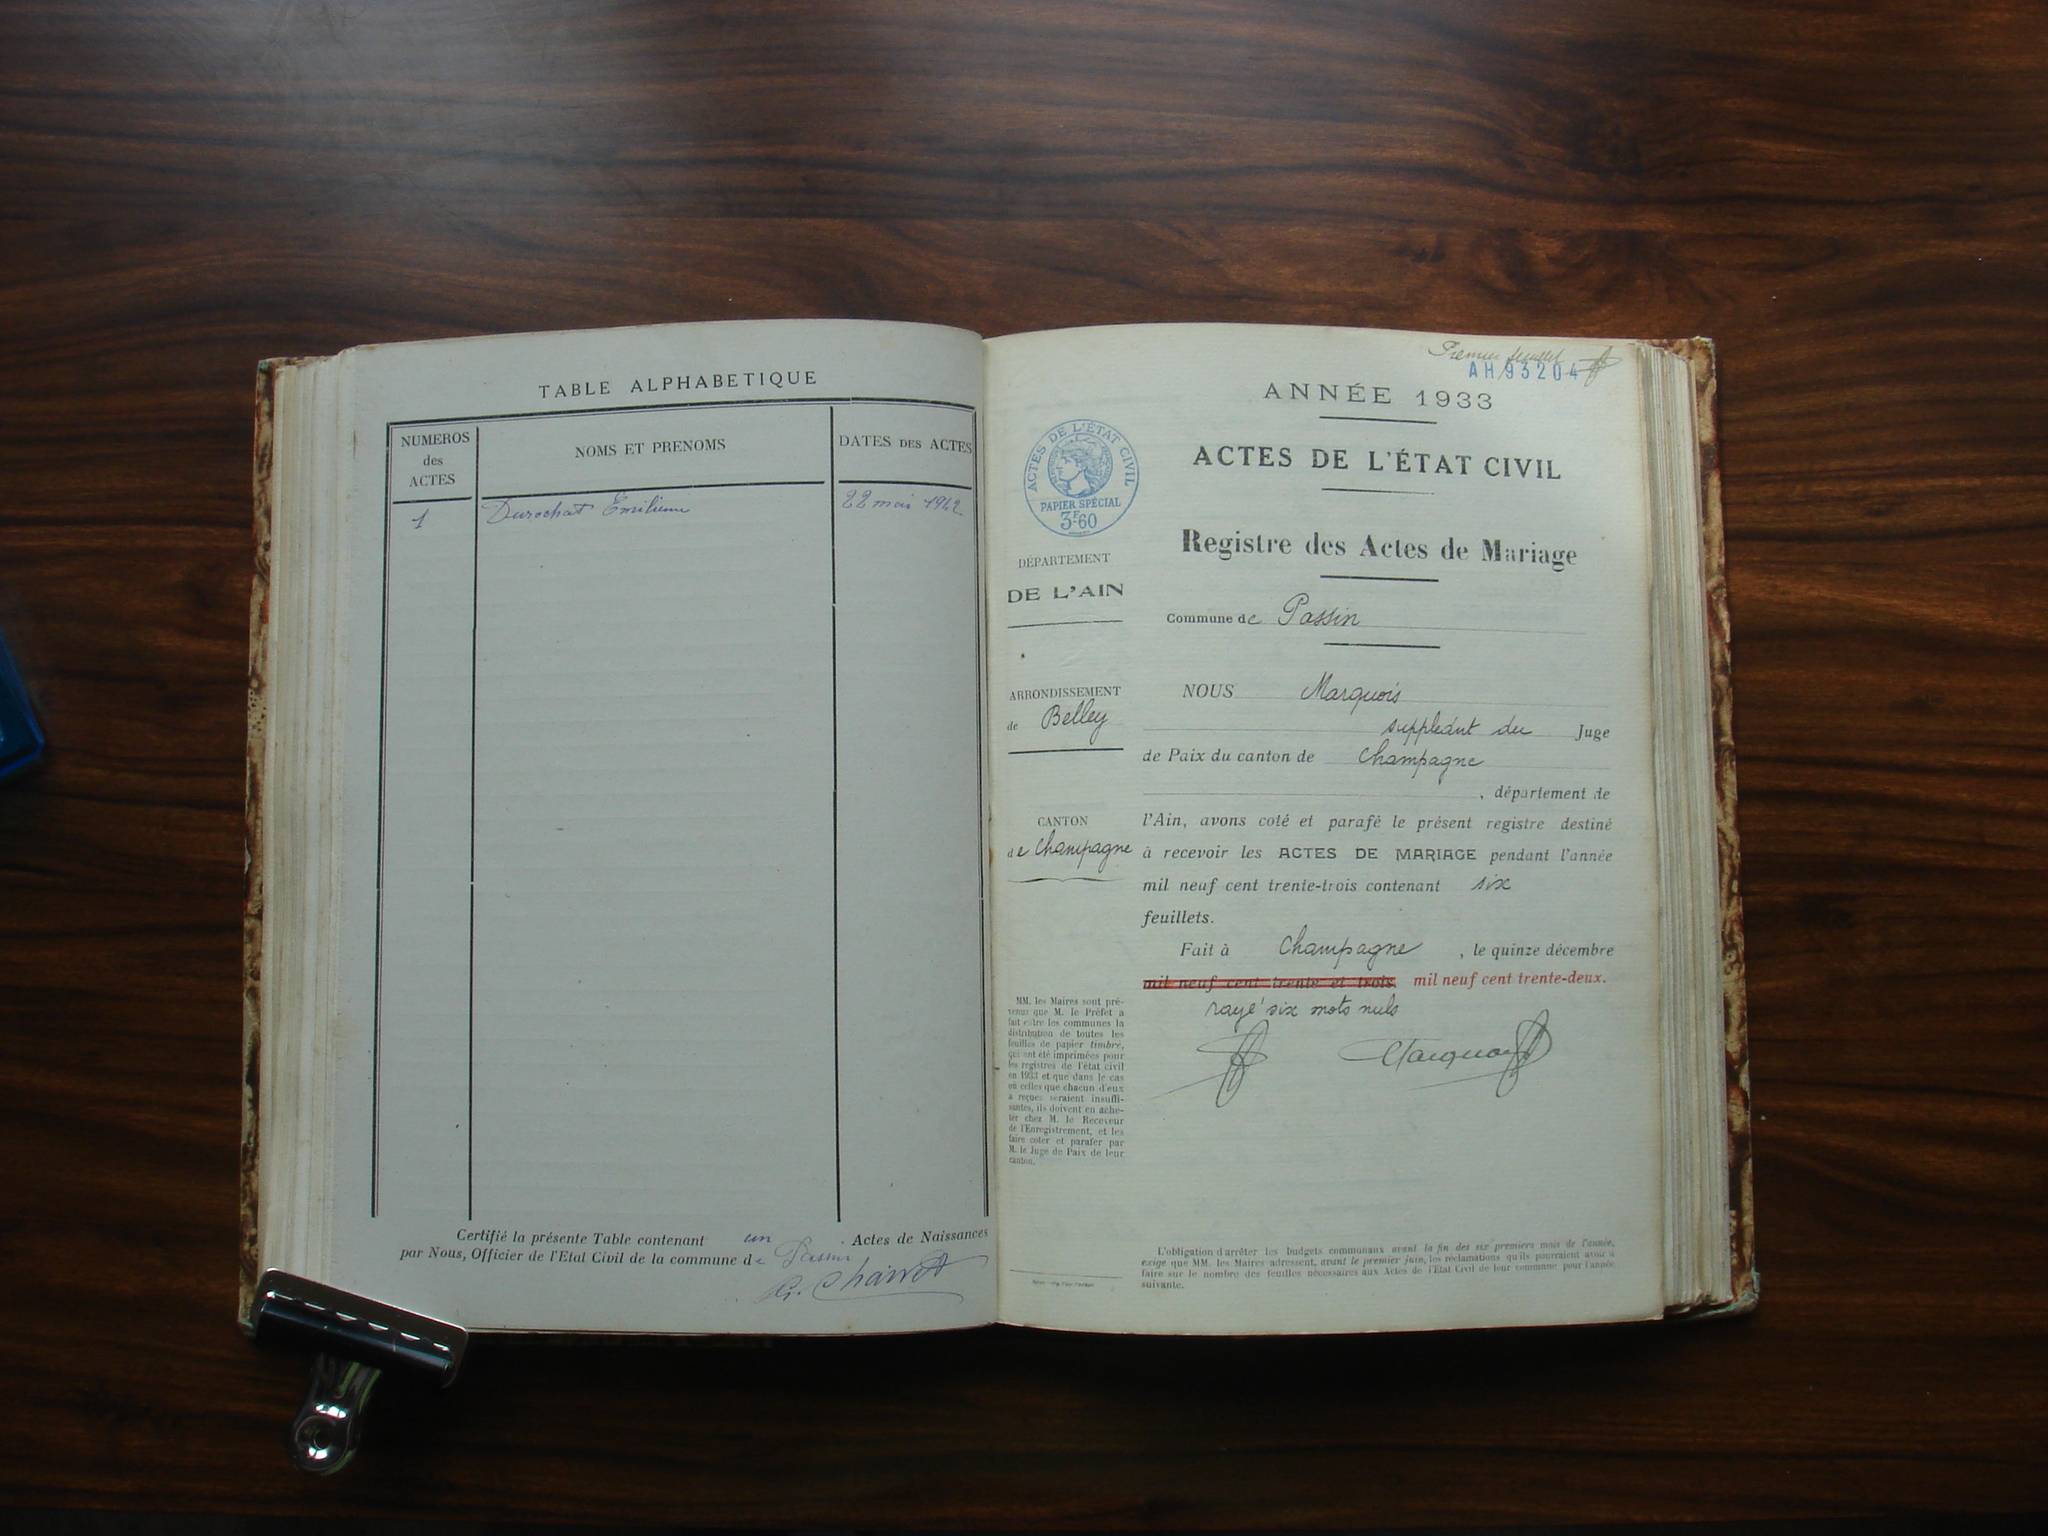 TABLE ALPHABETIQUE
NUMEROS
des
ACTES
NOMS ET PRENOMS
DATES DES ACTES
1
Durochat Emilienne
22 mai 1942
Certifié la présente Table contenant un Actes de Naissances
par Nous, Officier de l'Etat Civil de la commune de Passin
Premier feuillet
AH 93204
ANNÉE 1933
ACTES DE L'ÉTAT CIVIL
Registre des Actes de Mariage
Commune de Passin
ACTES DE L'ÉTAT CIVIL
PAPIER SPÉCIAL
3F60
DÉPARTEMENT
DE L'AIN
ARRONDISSEMENT
de Belley
CANTON
de Champagne
MM. les Maires sont pré-
venus que M. le Préfet a
fait entre les communes la
distribution de toutes les
feuilles de papier timbré,
qui ont été imprimées pour
les registres de l'état civil
en 1933 et que dans le cas
où celles que chacun d'eux
a reçues seraient insuffi-
santes, ils doivent en ache-
ter chez M. le Receveur
de l'Enregistrement, et les
faire coter et parafer par
M. le Juge de Paix de leur
canton.
NOUS Marquois
suppléant du Juge
de Paix du canton de Champagne
, département de
l'Ain, avons coté et parafé le présent registre destiné
à recevoir les ACTES DE MARIAGE pendant l'année
mil neuf cent trente-trois contenant six
feuillets.
Fait à Champagne , le quinze décembre
mil neuf cent trente et trois mil neuf cent trente-deux.
rayé six mots nuls
Marquois
L'obligation d'arrêter les budgets communaux avant la fin des six premiers mois de l'année,
exige que MM. les Maires adressent, avant le premier juin, les réclamations qu'ils pourraient avoir à
faire sur le nombre des feuilles nécessaires aux Actes de l'Etat Civil de leur commune pour l'année
suivante.